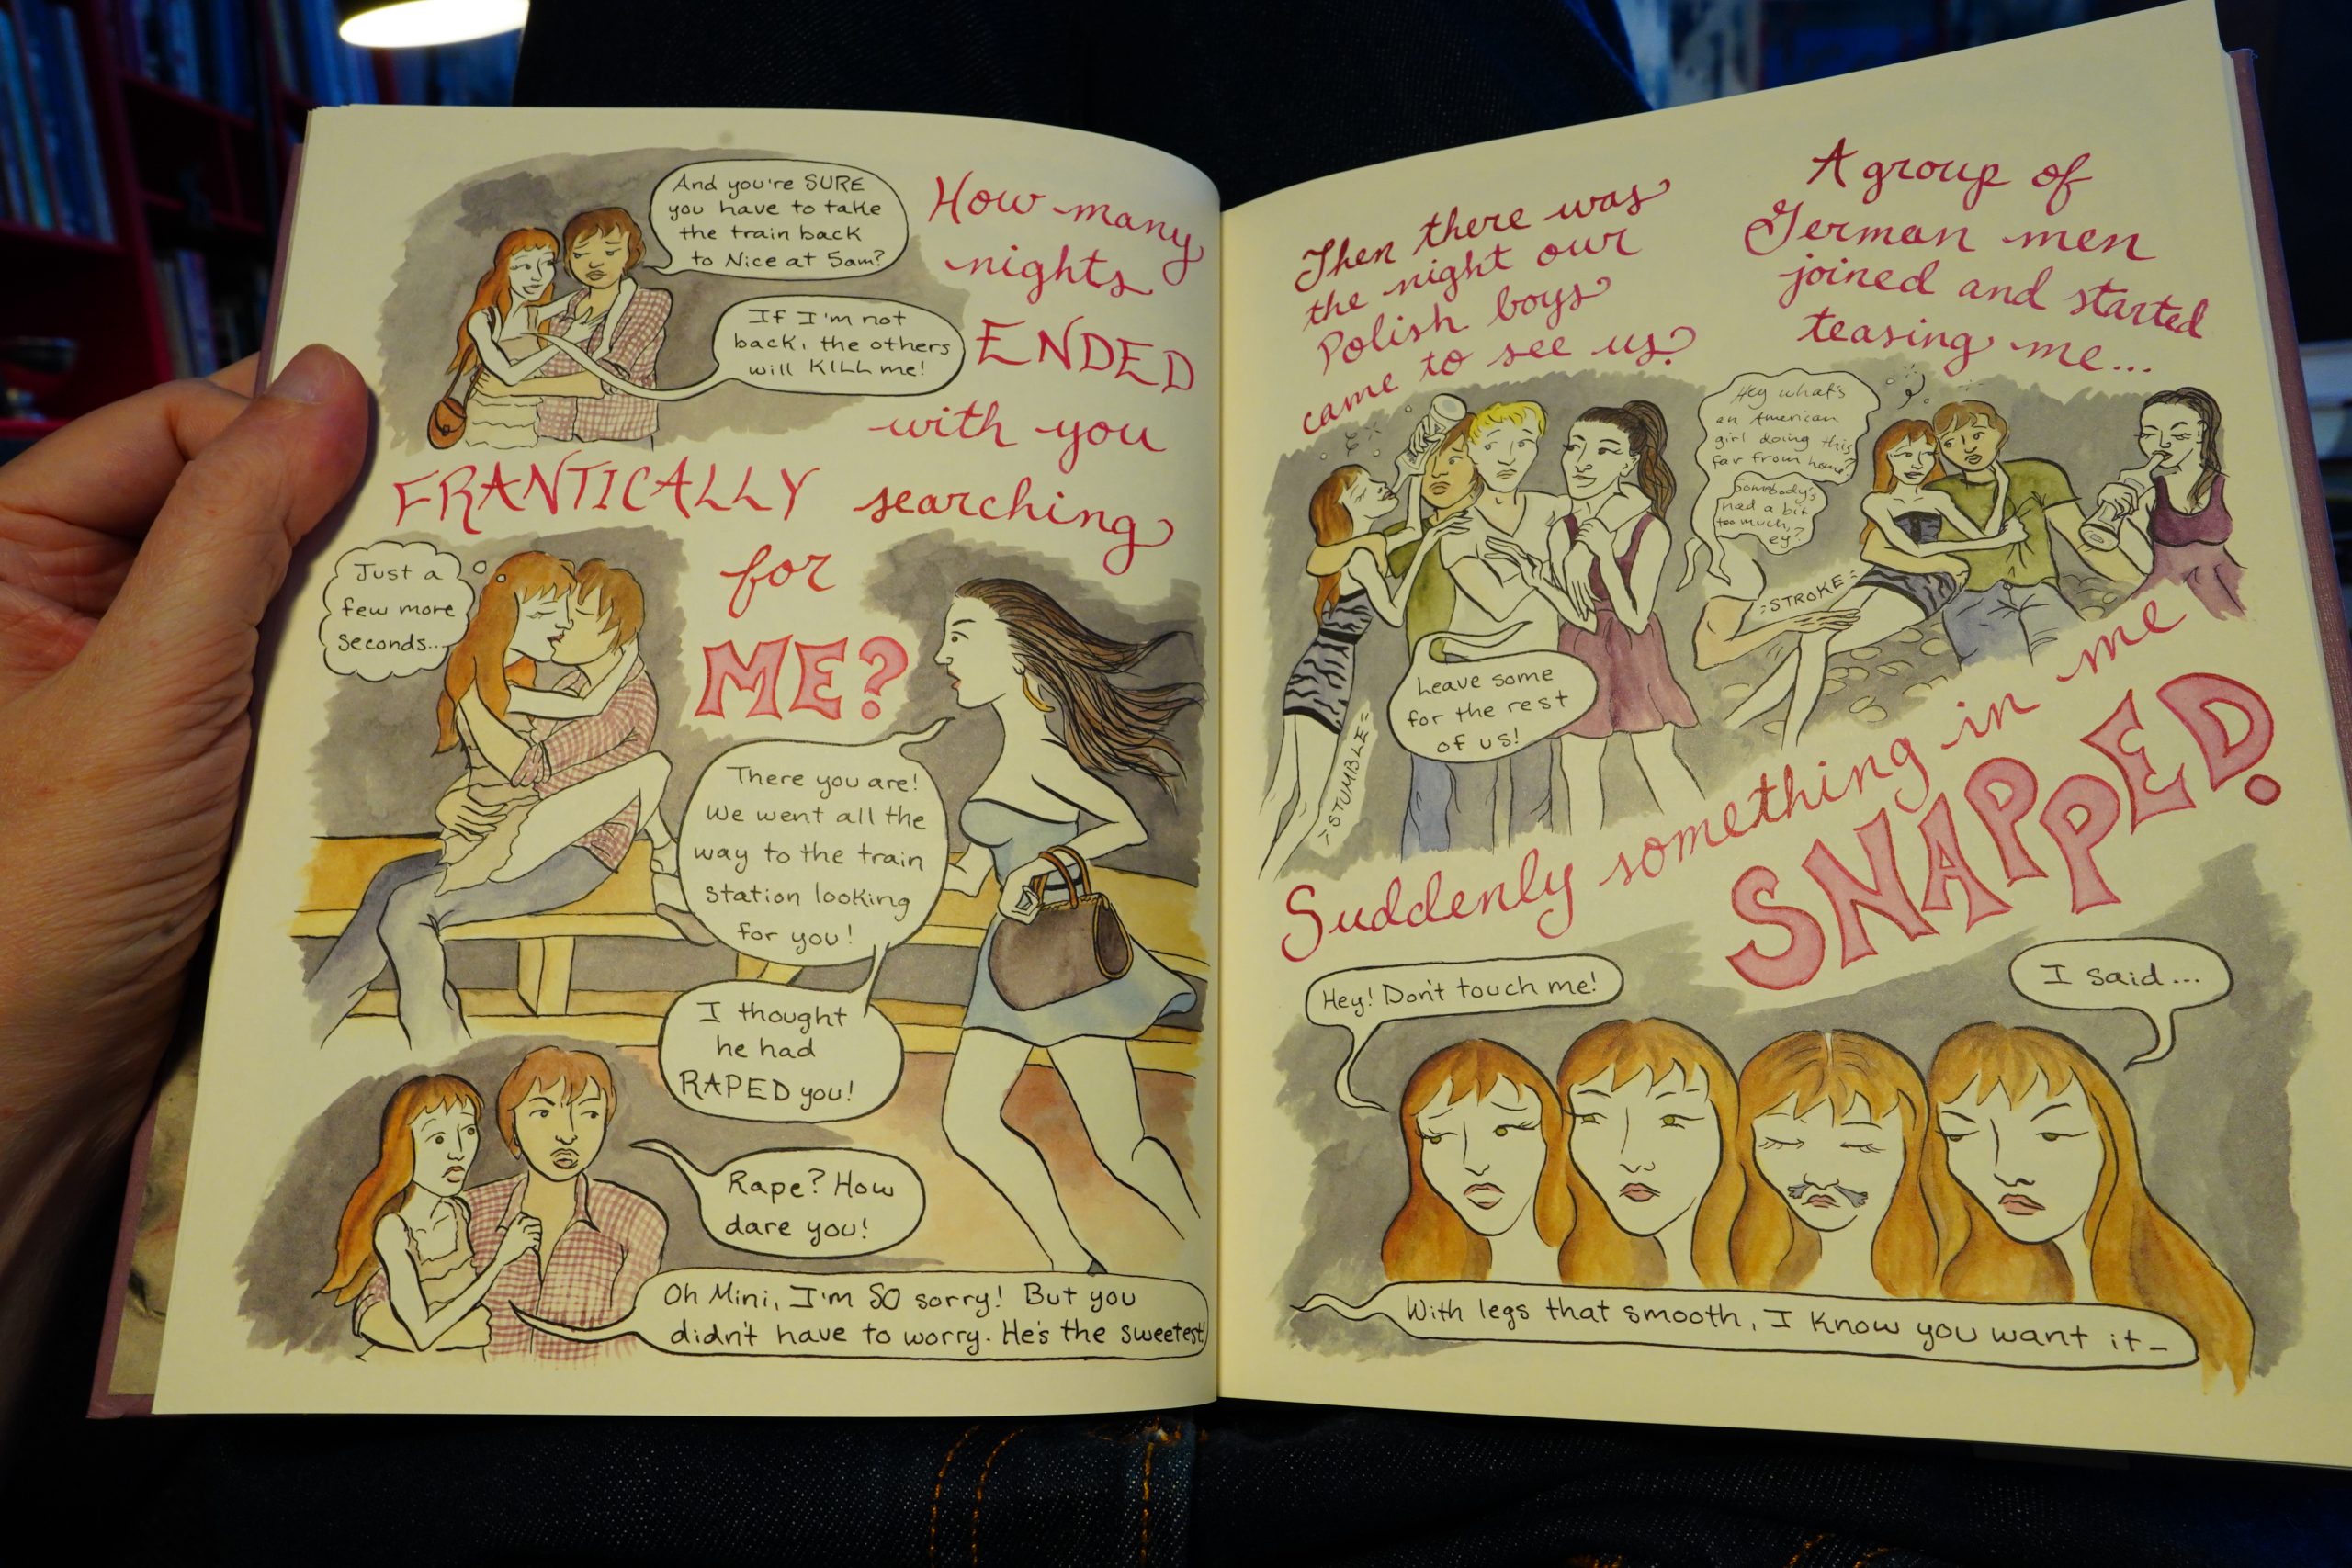 And you're SURE
you have to take
the train back
to Nice at 5am?
If I'm not
back, the others
will KILL me!
How many
nights
ENDED
with you
FRANTICALLY searching
for
ME?
Just a
few more
seconds...
There you are!
We went all the
way to the train
station looking
for you!
I thought
he had
RAPED you!
Rape? How
dare you!
Oh Mini, I'm SO sorry! But you
didn't have to worry. He's the sweetest!
Then there was
the night our
Polish boys
came to see us?
Leave some
for the rest
of us!
=STUMBLE=
A group of
German men
joined and started
teasing me...
Hey what's
an American
girl doing this
far from home?
Somebody's
had a bit
too much,
ey?
=STROKE=
Suddenly something in me
SNAPPED.
Hey! Don't touch me!
I said...
With legs that smooth, I know you want it-